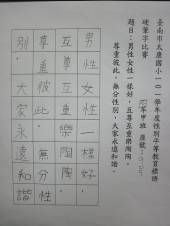 臺南市太康國小一○一學年度性別平等教育標語
硬筆字比賽
四年甲班 座號:
題目:男性女性一樣好,互尊互重樂陶陶。
尊重彼此,無分性別,大家永遠和諧。
男性女性一樣好,
互尊互重樂陶陶。
尊重彼此,無分性
別,大家永遠和諧